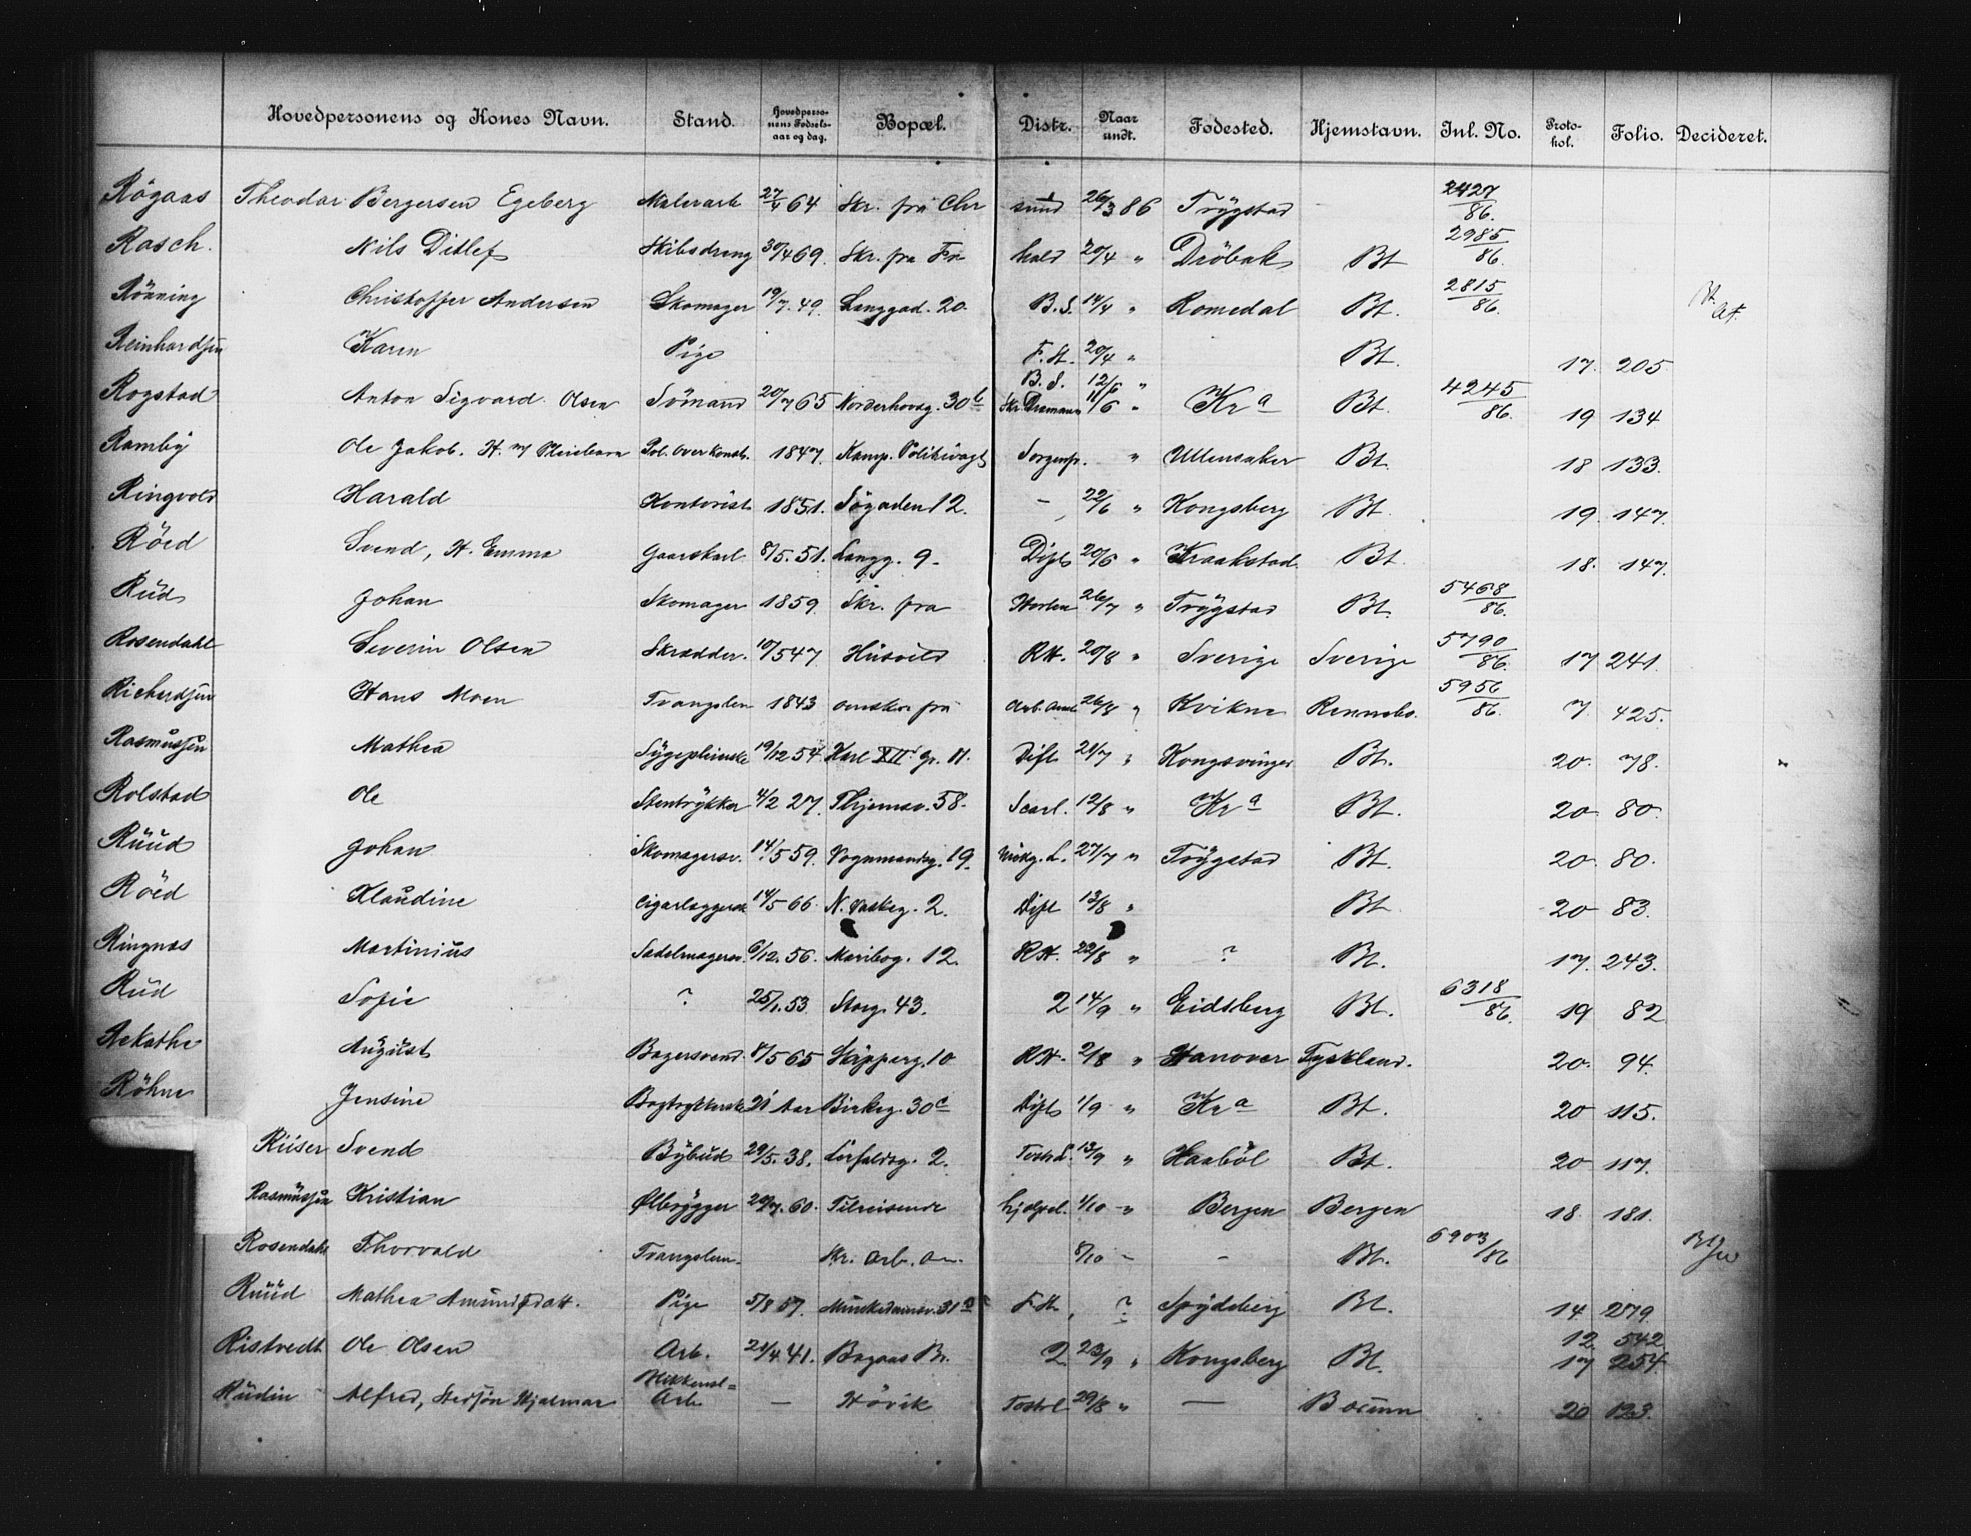 Hovedpersonens og Kones Navn. Stand. Hovedpersonens Fødselsaar og dag. Bopæl. Distr. Naar undt. Fødested. Hjemstavn. Inl. No. Protokol. Folio. Decideret.
Rögaas Theodor Bergersen Egeberg Malerarb 64 Skr. fra Chr sund 26/3 86 Trygstad 2427/86.
Rasch. Nils Ditlef Skibsdreng 30/4 69. Skr. fra Fr hald 20/4 " Dröbak Bt 2985/86.
Rönning Christoffer Andersen Skomager 19/7. 49. Langgad. 20. B.S. 14/4 " Romedal Bt. 2815/86. Bt.
Reinhardsen Karen Pige F.St. 20/4 " Bt. 17. 205
Rogstad Anton Sigvard Olsen Sömand 20/7 65 Norderhovsg. 30 B.S. 12/6 " Skr. Drammen 11/6 " Kra Bt. 4245/86. 19 134
Ramby Ole Jakob. H. Pol. Overkonst. 1847. Kamp. Politivagt Sorgenfr. " Ullensaker Bt. 18 133.
Ringvold Harald Kontorist 1851. Sögaden 12. - 22/6 " Kongsberg Bt. 19. 147.
Röed Svend, H. Emma Gaarskarl 8/5. 51. Langg. 9. Dift 20/6 " Kraakstad Bt. 18. 147.
Rud Johan Skomager 1859. Skr. fra Horten 26/7 " Trygstad Bt. 5468/86.
Rosendahl Severin Olsen Skrædder. 10/5 47 Husvild RH. 20/8 " Sverige Sverige 5790/86. 17 241.
Richardsen Hans Moen Tvangslem 1843 fra Arb. Anst 26/8 " Kvikne Rennebo. 5956/86. 7. 425.
Rasmussen Mathea Sygepleierske 19/12 54 Karl XII gr. 11. Dift 21/7 " Kongsvinger Bt. 20. 78.
Rolstad Ole Stentrykker 4/2 27. Thjemsv. 58. Scarl. 12/8 " Kra Bt. 20 80.
Ruud Johan Skomagersv. 14/5 59. Vognmandsg. 19. 27/7 " Trygstad Bt. 20. 80.
Röed Klaudine 14/5 66 N. Vaskeg. 2. Dift 13/8 " Bt. 20 83.
Ringnæs Martinius Sadelmagersv. 6/12. 56. Maribog. 12. RH. 22/8 " ? Bt. 17. 243.
Rud Sofie ? 25/1. 53 Storg. 43. 2 14/9 " Eidsberg Bt. 6318/86. 19 82
Rekathe August Bagersvend 8/5 65 Skipperg. 10 RH. 2/8 " Hanover Tyskland. 20. 94.
Röhne Jensine Bogtrykkerske 21 Aar Birkeg. 30 c Dift 1/9 " Kra Bt. 20 115.
Riiser Svend Bybud 29/5. 38. Lerfaldsg. 2. 13/9 " Haaböl Bt. 20 117.
Rasmussen Kristian Ølbrygger 20/7. 60. Tilreisende hjælpel. 1/10 " Bergen Bergen 18 181.
Rosendahl Thorvald Tvangslem Skr. Arb. An. 8/10 - - Bt. 6903/86
Ruud Mathea Amundsdatt. Pige 5/8 57. Munkedamsv. 31 F.St. ? Spydeberg Bt. 14 279.
Ristvedt Ole Olsen Arb. 21/4 41. Bogaas Br. 2 23/9 " Kongsberg Bt. 12 542 17 254.
Rudin Alfred, Stedsön Hjalmar Arb. — Hövik 29/8 " — Bærum 20 123.